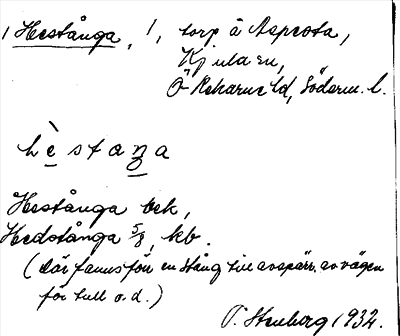 Hestånga, 1, torp å Aspesta,
Kjula sn,
Ö Rekarne hd, Söderm. l.
hèstaŋa
Hestånga bek,
Hedstånga 5/8, kb.
(där fanns förr en stång till avspärr. av vägen
för tull o.d.)
T. Stenberg 1932.